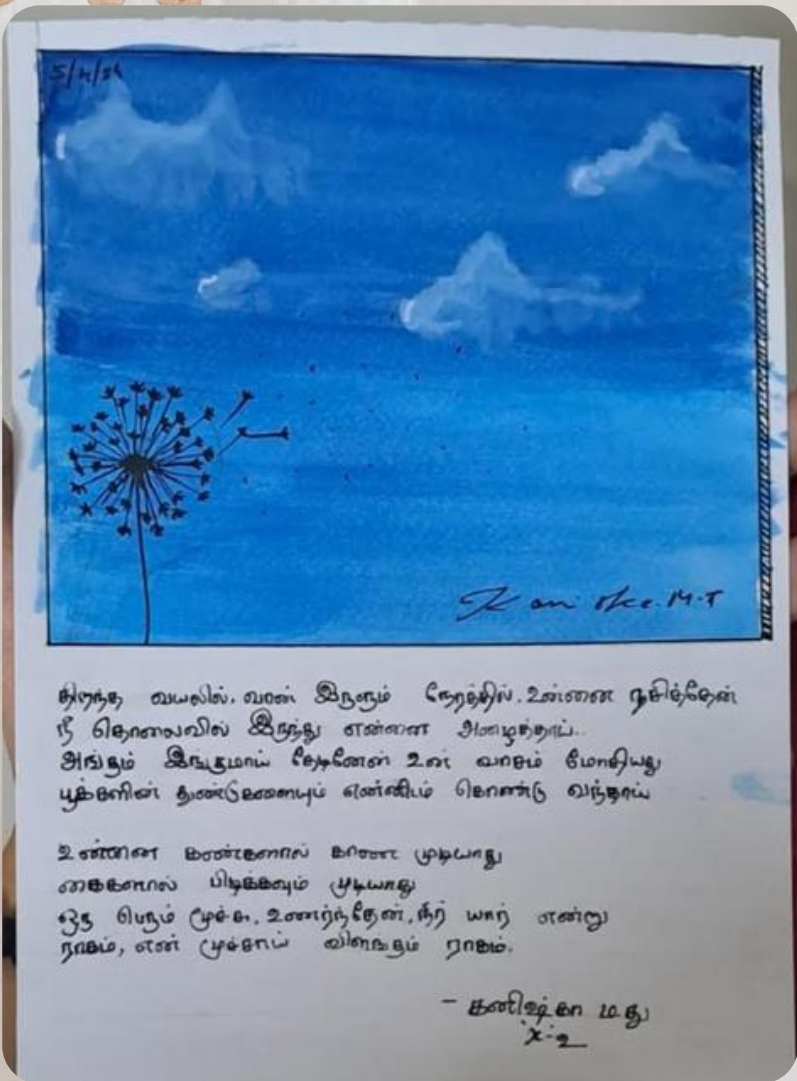 5/4/24
Kanishka.M.T
திறந்த வயலில், வான் இருளும் நேரத்தில், உன்னை ரசித்தேன்
நீ தொலைவில் இருந்து என்னை அழைத்தாய்..
அங்கும் இங்குமாய் தேடினேன் உன் வாசம் மோதியது
பூக்களின் துண்டுகளையும் என்னிடம் கொண்டு வந்தாய்
உன்னை கண்களால் காண முடியாது
கைகளால் பிடிக்கவும் முடியாது
ஒரு பெரும் மூச்சு, உணர்ந்தேன், நீர் யார் என்று
ராகம், என் மூச்சாய் விளங்கும் ராகம்.
- கனிஷ்கா மது
X-2